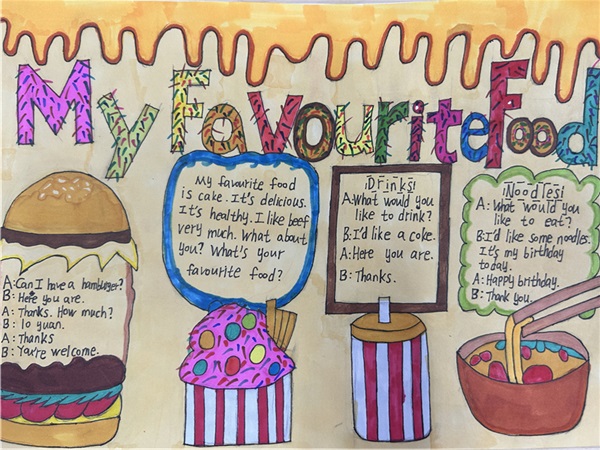 My Favourite Food
A: Can I have a hamburger?
B: Here you are.
A: Thanks. How much?
B: 10 yuan.
A: Thanks
B: You're welcome.
My favourite food
is cake. It's delicious.
It's healthy. I like beef
very much. What about
you? What's your
favourite food?
Drinks!
A: What would you
like to drink?
B: I'd like a coke.
A: Here you are.
B: Thanks.
Noodles!
A: What would you
like to eat?
B: I'd like some noodles.
It's my birthday
today.
A: Happy birthday.
B: Thank you.